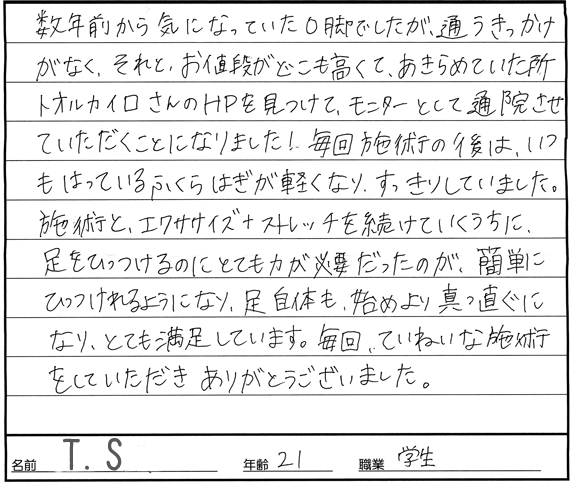 数年前から気になっていたO脚でしたが、通うきっかけ
がなく、それと、お値段がどこも高くて、あきらめていた所
トオルカイロさんのHPを見つけて、モニターとして通院させ
ていただくことになりました！毎回施術の後は、いつ
もはっているふくらはぎが軽くなり、すっきりしていました。
施術と、エクササイズ+ストレッチを続けていくうちに、
足をひっつけるのにとても力が必要だったのが、簡単に
ひっつけれるようになり、足自体も、始めより真っ直ぐに
なり、とても満足しています。毎回、ていねいな施術
をしていただきありがとうございました。
名前 T.S 年齢 21 職業 学生